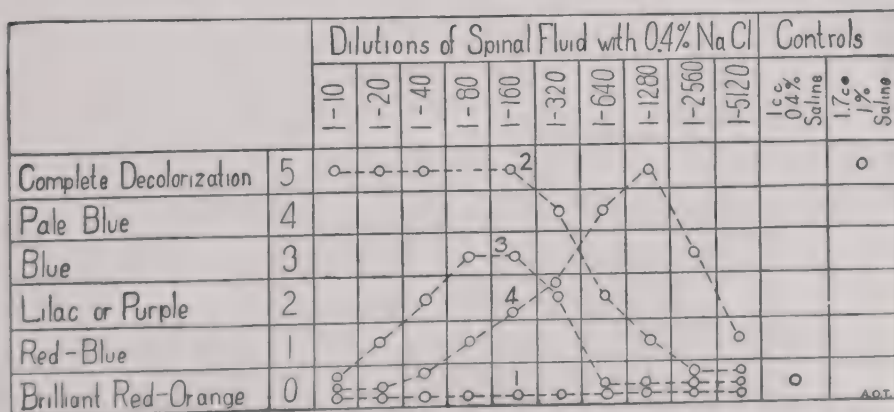 Dilutions of Spinal Fluid with 0.4% NaCl Controls
1-10 1-20 1-40 1-80 1-160 1-320 1-640 1-1280 1-2560 1-5120 1cc 0.4% Saline 1.7cc 1% Saline
Complete Decolorization 5 2
Pale Blue 4
Blue 3 3
Lilac or Purple 2 4
Red-Blue 1
Brilliant Red-Orange 0 1